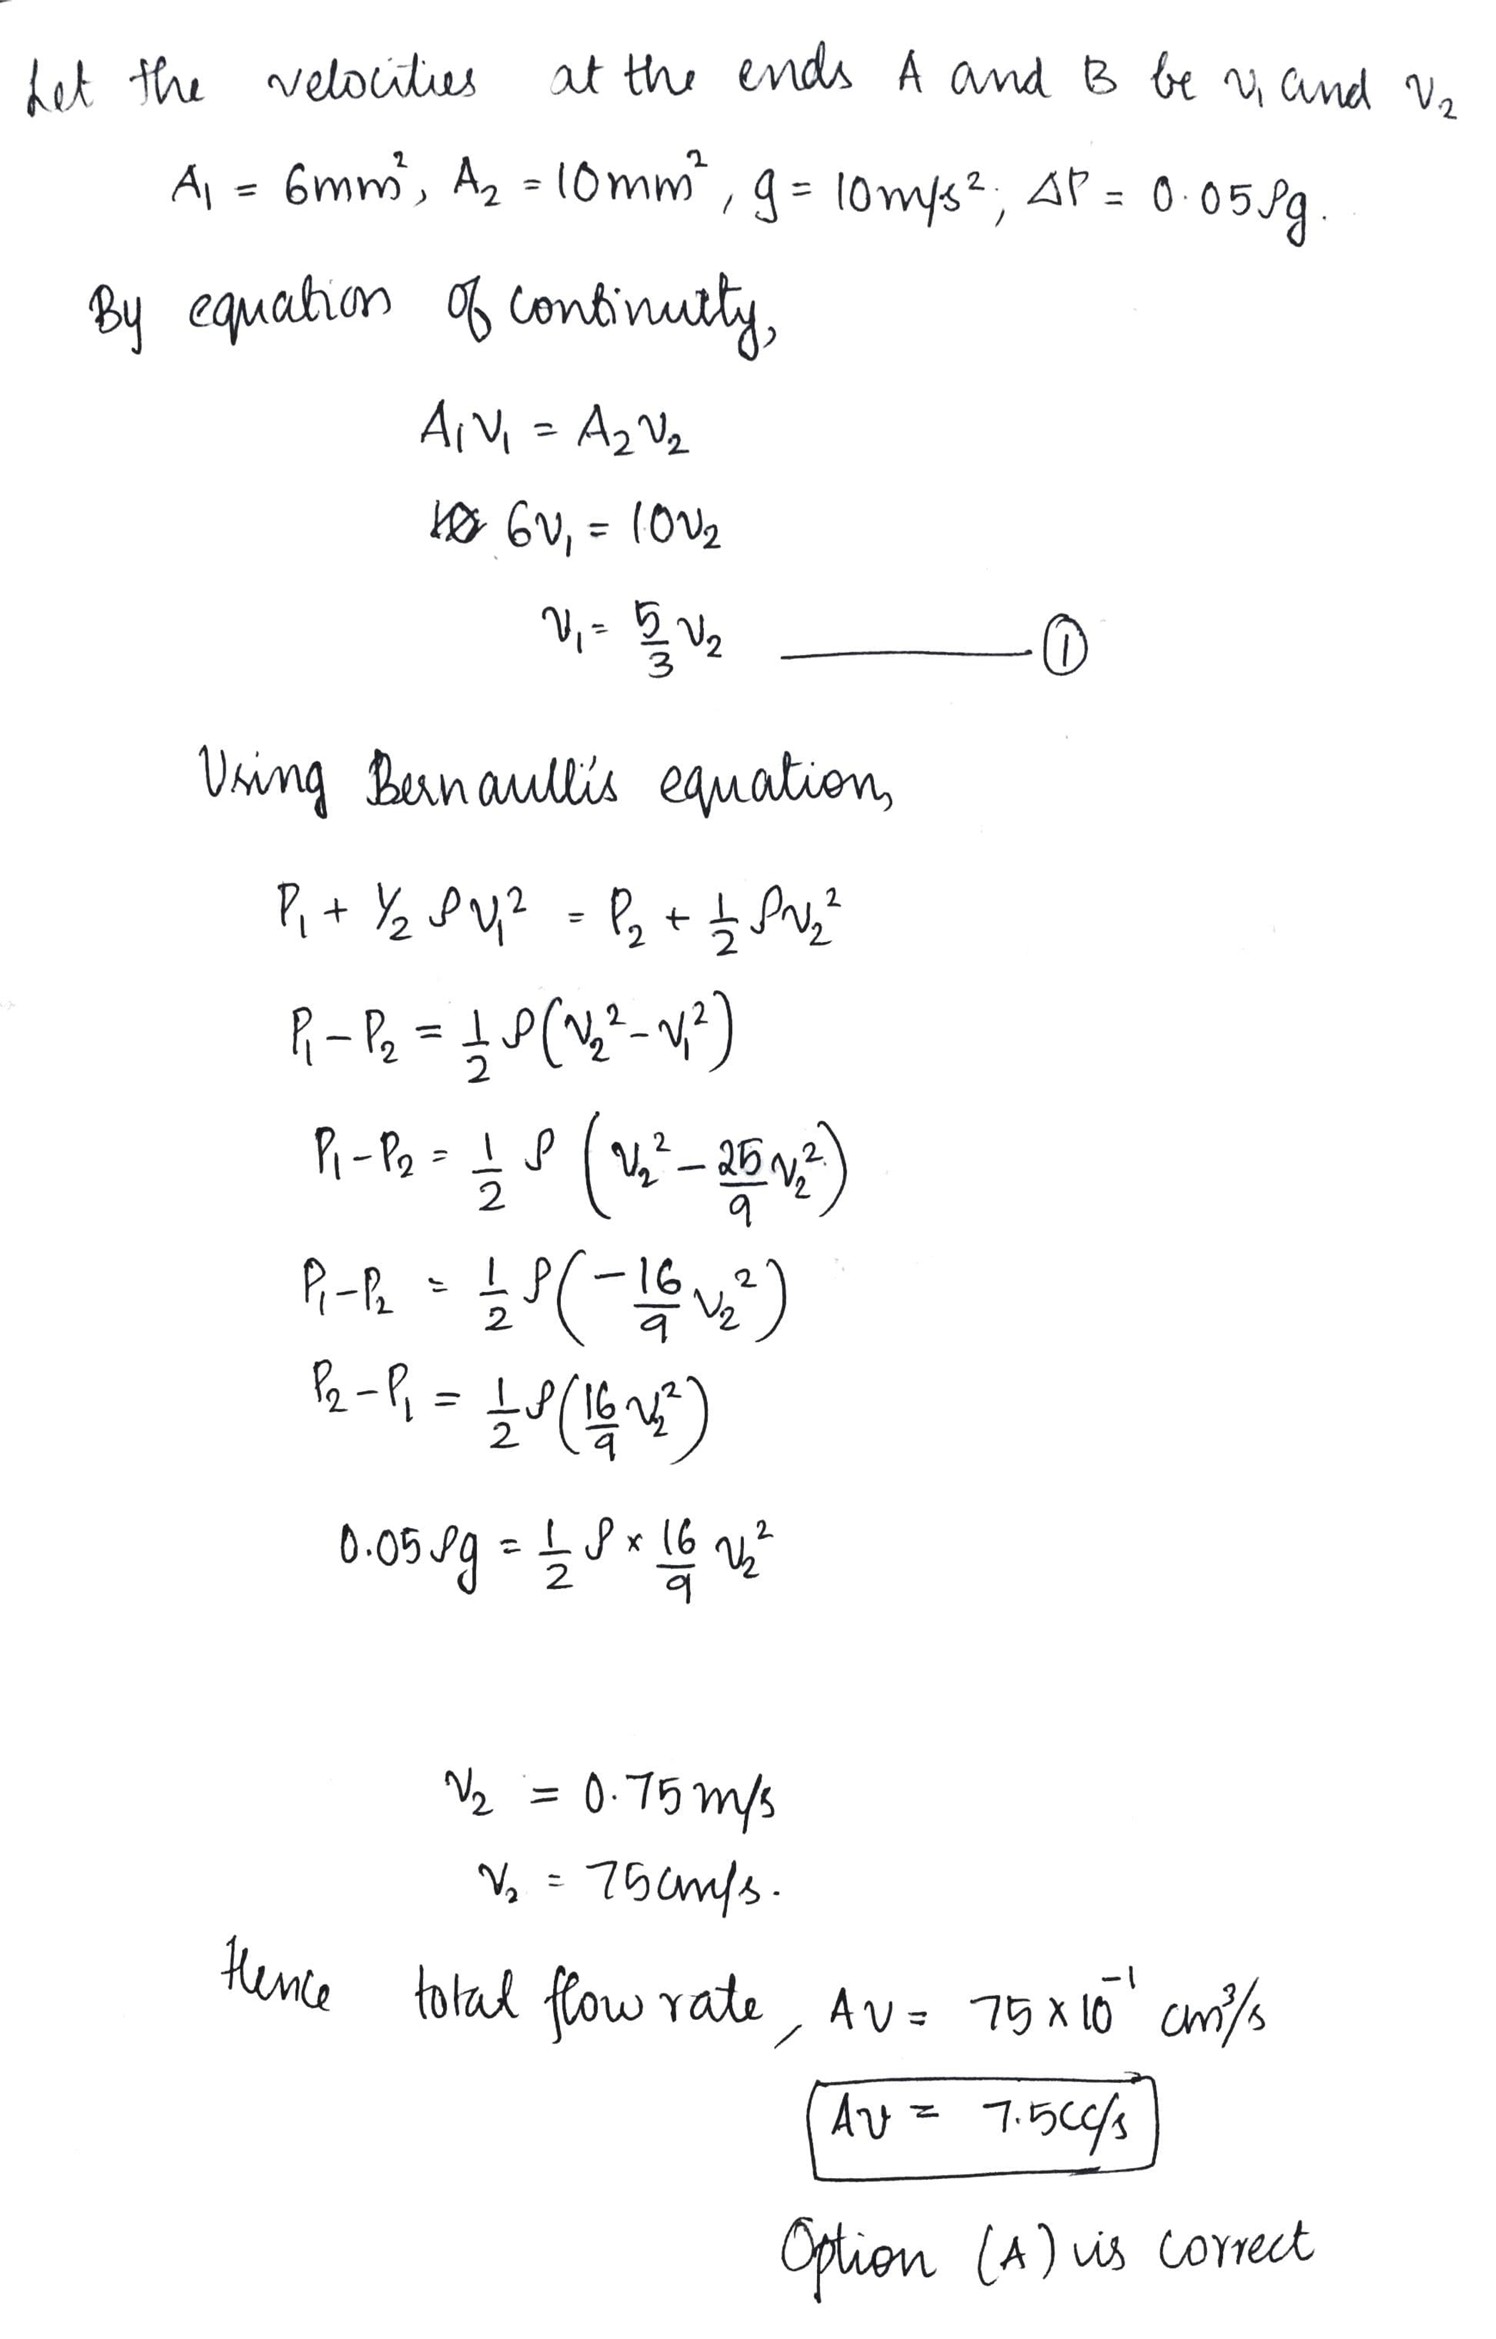 Let the velocities at the ends A and B be v₁ and v₂
A₁ = 6mm², A₂ = 10mm², g = 10m/s²; ΔP = 0.05ρg.
By equation of continuity,
A₁V₁ = A₂V₂
6v₁ = 10v₂
v₁ = 5/3 v₂ ———— ①
Using Bernaulli's equation,
P₁ + ½ ρv₁² = P₂ + 1/2 ρv₂²
P₁ - P₂ = 1/2 ρ(v₂² - v₁²)
P₁ - P₂ = 1/2 ρ (v₂² - 25/9 v₂²)
P₁ - P₂ = 1/2 ρ(-16/9 v₂²)
P₂ - P₁ = 1/2 ρ(16/9 v₂²)
0.05ρg = 1/2 ρ × 16/9 v₂²
v₂ = 0.75 m/s
v₂ = 75cm/s.
Hence total flow rate, AV = 75 × 10⁻¹ cm³/s
AV = 7.5cc/s
Option (A) is correct